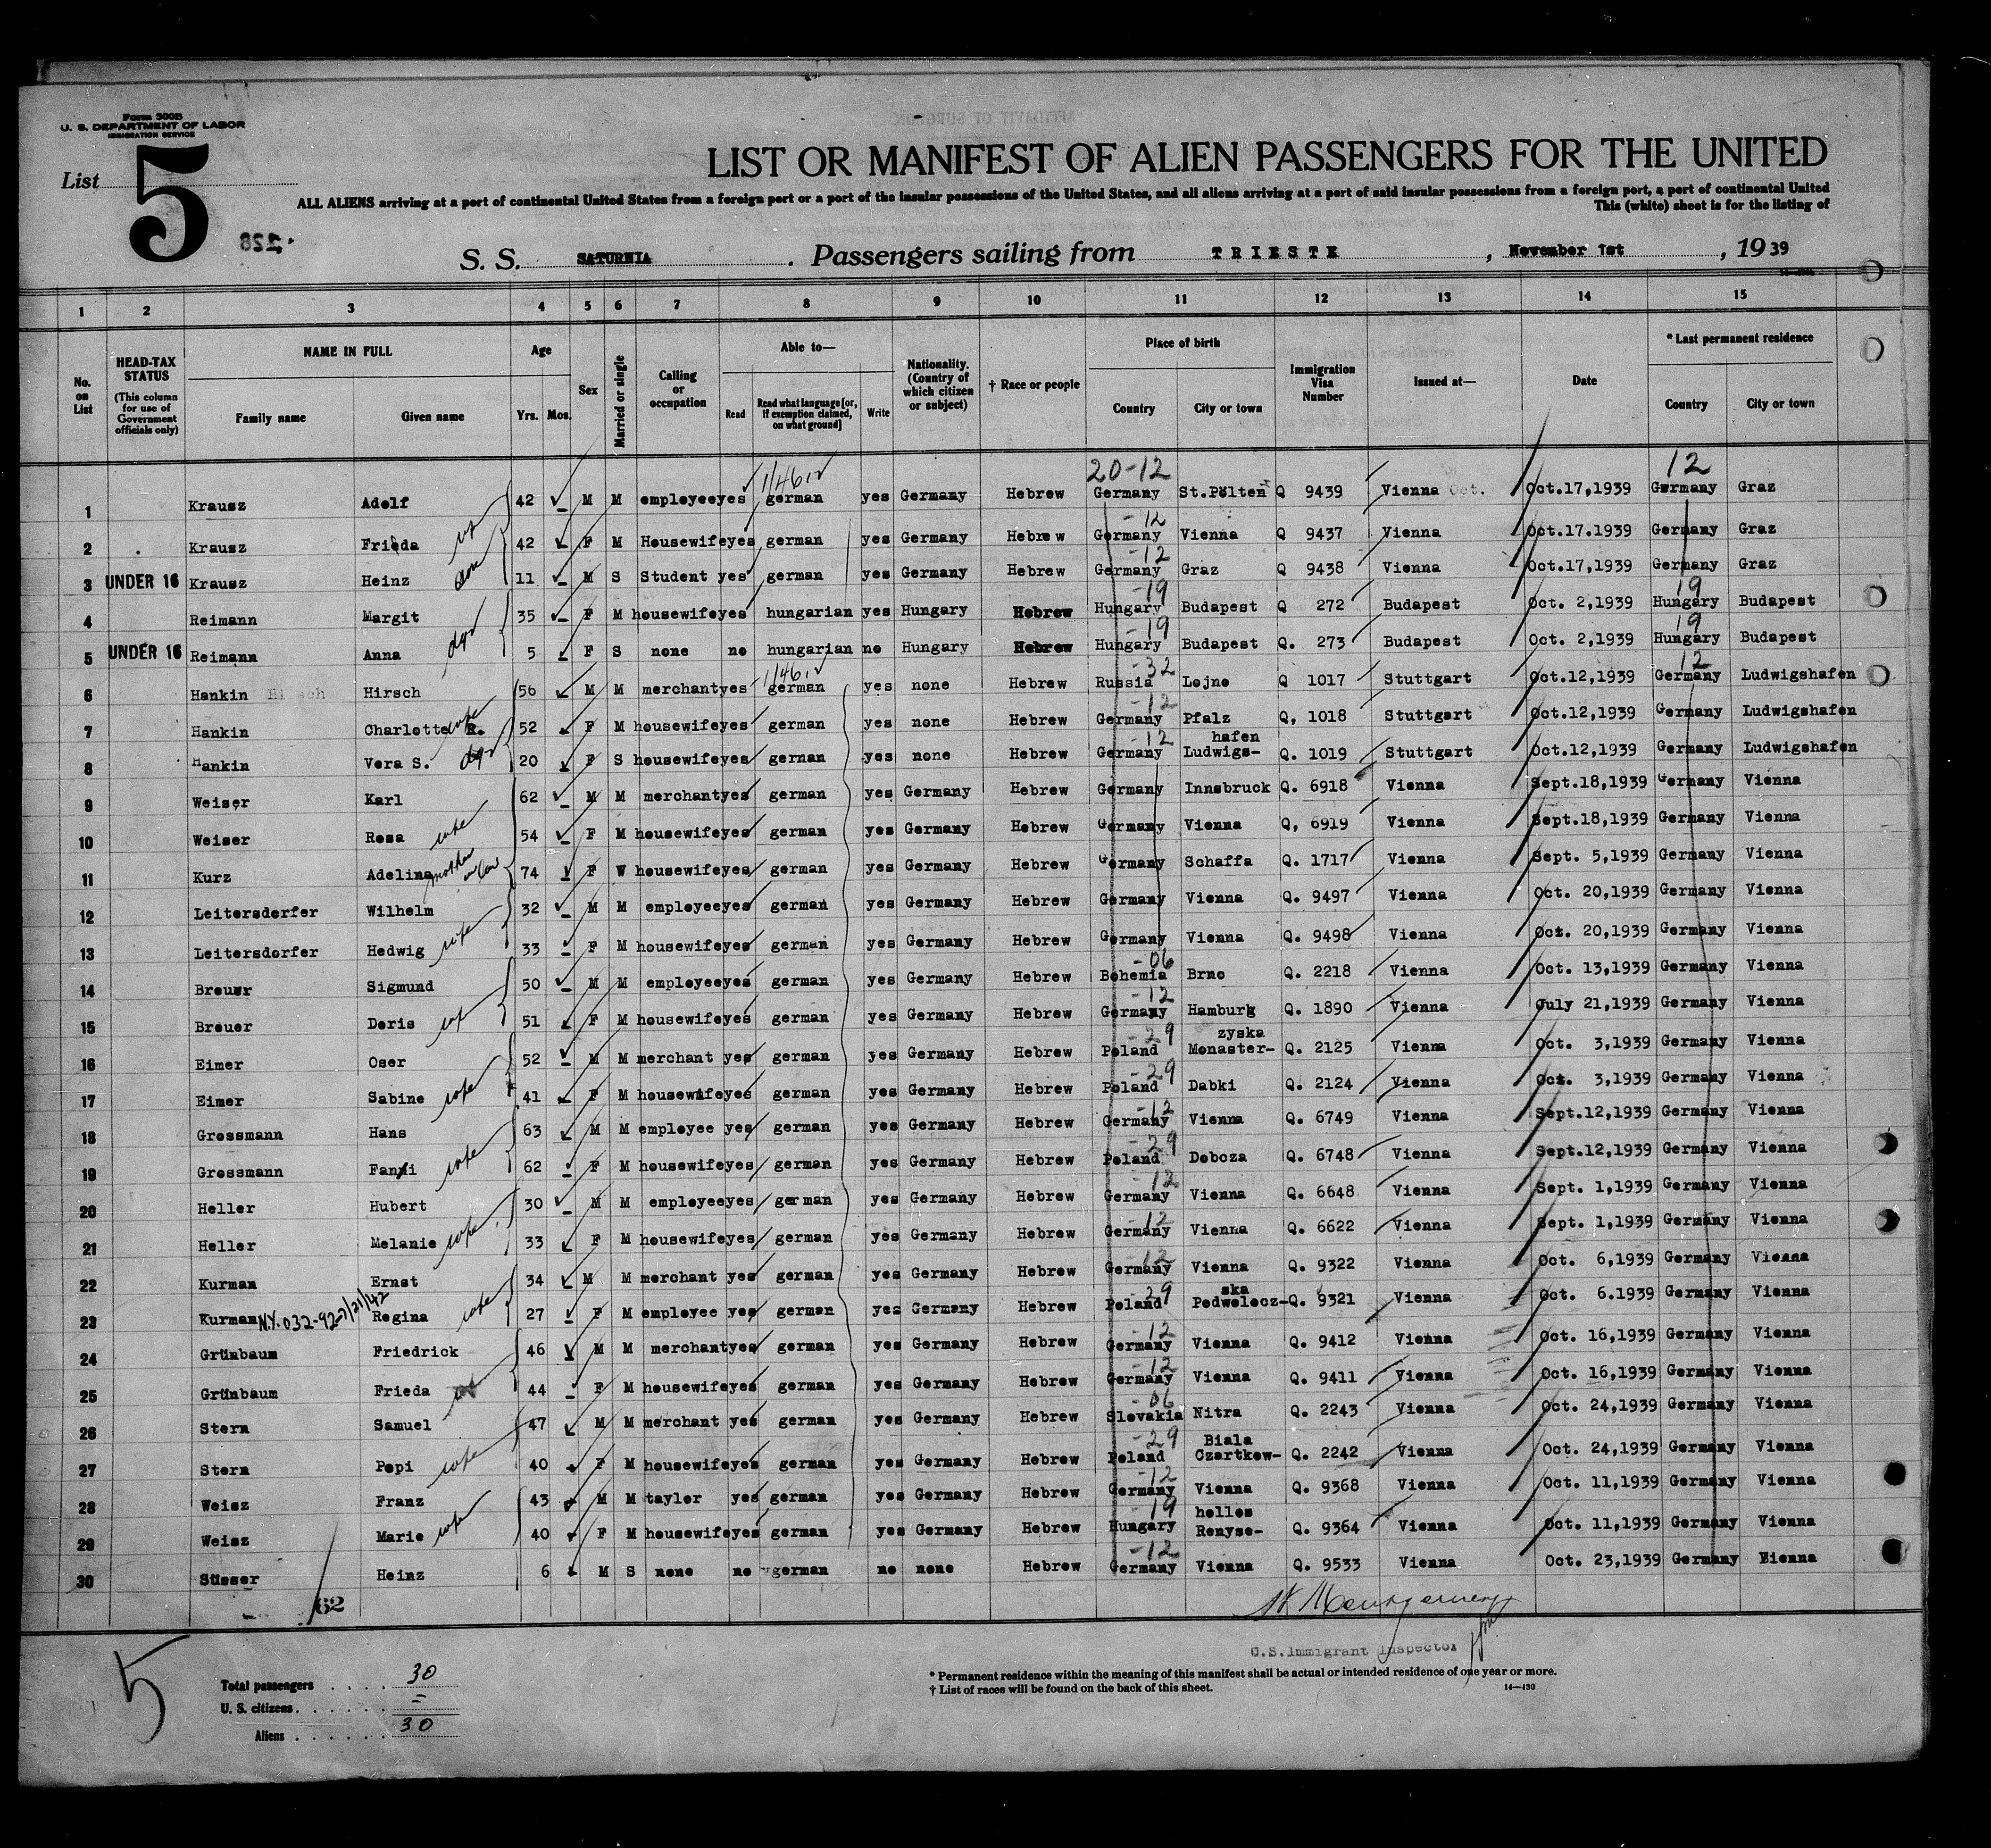 Form 500B
U. S. DEPARTMENT OF LABOR
IMMIGRATION SERVICE
List 5
LIST OR MANIFEST OF ALIEN PASSENGERS FOR THE UNITED
ALL ALIENS arriving at a port of continental United States from a foreign port or a port of the insular possessions of the United States, and all aliens arriving at a port of said insular possessions from a foreign port, a port of continental United
This (white) sheet is for the listing of
228
S. S. SATURNIA. Passengers sailing from TRIESTE, November 1st, 1939
1 2 3 4 5 6 7 8 9 10 11 12 13 14 15
No. on List
HEAD-TAX STATUS (This column for use of Government officials only)
NAME IN FULL Family name Given name
Age Yrs. Mos.
Sex
Married or single
Calling or occupation
Able to— Read Read what language [or, if exemption claimed, on what ground] Write
Nationality. (Country of which citizen or subject)
† Race or people
Place of birth Country City or town
Immigration Visa Number
Issued at—
Date
* Last permanent residence Country City or town
1/46 20-12 12
1 Krausz Adolf 42 M M employee yes german yes Germany Hebrew Germany St.Pölten Q 9439 Vienna Oct. Oct.17,1939 Germany Graz
-12
2 Krausz Frieda wf 42 F M Housewife yes german yes Germany Hebrew Germany Vienna Q 9437 Vienna Oct.17.1939 Germany Graz
-12
3 UNDER 16 Krausz Heinz son 11 M S Student yes german yes Germany Hebrew Germany Graz Q 9438 Vienna Oct.17,1939 Germany Graz
-19 19
4 Reimann Margit 35 F M housewife yes hungarian yes Hungary Hebrew Hungary Budapest Q 272 Budapest Oct. 2,1939 Hungary Budapest
-19 19
5 UNDER 16 Reimann Anna dgr 5 F S none no hungarian no Hungary Hebrew Hungary Budapest Q. 273 Budapest Oct. 2,1939 Hungary Budapest
1/46 -32 12
6 Hankin Hirsch 56 M M merchant yes german yes none Hebrew Russia Lojne Q 1017 Stuttgart Oct.12,1939 Germany Ludwigshafen
-12
7 Hankin Charlotte R. wife 52 F M housewife yes german yes none Hebrew Germany Pfalz Q, 1018 Stuttgart Oct.12,1939 Germany Ludwigshafen
-12 hafen
8 Hankin Vera S. dgr 20 F S housewife yes gernan yes none Hebrew Germany Ludwigs- Q. 1019 Stuttgart Oct.12,1939 Germany Ludwigshafen
9 Weiser Karl 62 M M merchant yes german yes Germany Hebrew Germany Innsbruck Q. 6918 Vienna Sept.18,1939 Germany Vienna
10 Weiser Rosa wife 54 F M housewife yes german yes Germany Hebrew Germany Vienna Q, 6919 Vienna Sept.18,1939 Germany Vienna
11 Kurz Adelina mother in law 74 F W housewife yes german yes Germany Hebrew Germany Schaffa Q. 1717 Vienna Sept. 5,1939 Germany Vienna
12 Leitersdorfer Wilhelm 32 M M employee yes german yes Germany Hebrew Germany Vienna Q. 9497 Vienna Oct. 20,1939 Germany Vienna
13 Leitersdorfer Hedwig wife 33 F M housewife yes german yes Germany Hebrew Germany Vienna Q. 9498 Vienna Oct. 20,1939 Germany Vienna
-06
14 Breuer Sigmund 50 M M employee yes german yes Germany Hebrew Bohemia Brno Q. 2218 Vienna Oct. 13,1939 Germany Vienna
-12
15 Breuer Doris wf 51 F M housewife yes german yes Germany Hebrew Germany Hamburg Q. 1890 Vienna July 21,1939 Germany Vienna
-29 zyska
16 Eimer Oser 52 M M merchant yes german yes Germany Hebrew Poland Monaster- Q. 2125 Vienna Oct. 3,1939 Germany Vienna
-29
17 Eimer Sabine wife 41 F M housewife yes german yes Germany Hebrew Poland Dabki Q. 2124 Vienna Oct. 3,1939 Germany Vienna
-12
18 Grossmann Hans 63 M M employee yes german yes Germany Hebrew Germany Vienna Q. 6749 Vienna Sept.12,1939 Germany Vienna
-29
19 Grossmann Fanni wife 62 F M housewife yes german yes Germany Hebrew Poland Dobcza Q. 6748 Vienna Sept.12,1939 Germany Vienna
-12
20 Heller Hubert 30 M M employee yes german yes Germany Hebrew Germany Vienna Q. 6648 Vienna Sept. 1,1939 Germany Vienna
-12
21 Heller Melanie wife 33 F M housewife yes german yes Germany Hebrew Germany Vienna Q. 6622 Vienna Sept. 1,1939 Germany Vienna
-12
22 Kurman Ernst 34 M M merchant yes german yes Germany Hebrew Germany Vienna Q. 9322 Vienna Oct. 6,1939 Germany Vienna
-29 ska
23 Kurman N.Y. 032-92-7/21/42 Regina wife 27 F M employee yes german yes Germany Hebrew Poland Podwolocz- Q. 9321 Vienna Oct. 6.1939 Germany Vienna
-12
24 Grünbaum Friedrick 46 M M merchant yes german yes Germany Hebrew Germany Vienna Q. 9412 Vienna Oct. 16,1939 Germany Vienna
-12
25 Grünbaum Frieda 44 F M housewife yes german yes Germany Hebrew Germany Vienna Q. 9411 Vienna Oct. 16,1939 Germany Vienna
-06
26 Stern Samuel 47 M M merchant yes german yes Germany Hebrew Slovakia Nitra Q. 2243 Vienna Oct. 24,1939 Germany Vienna
-29 Biala
27 Stern Pepi wife 40 F M housewife yes german yes Germany Hebrew Poland Czartkow- Q. 2242 Vienna Oct. 24,1939 Germany Vienna
-12
28 Weisz Franz 43 M M tayler yes german yes Germany Hebrew Germany Vienna Q. 9368 Vienna Oct. 11,1939 Germany Vienna
-19 holles
29 Weisz Marie wife 40 F M housewife yes german yes Germany Hebrew Hungary Renyse- Q. 9364 Vienna Oct. 11,1939 Germany Vienna
-12
30 Süsser Heinz 6 M S none no german no none Hebrew Germany Vienna Q. 9533 Vienna Oct. 23,1939 Germany Vienna
62
Montgomery
U.S. Immigrant Inspector
5
Total passengers . . . . 30
U. S. citizens . . . . . . =
Aliens . . . . . . 30
* Permanent residence within the meaning of this manifest shall be actual or intended residence of one year or more.
† List of races will be found on the back of this sheet.
14—430